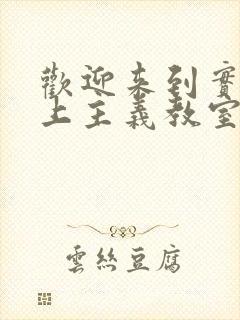 歡迎來到實
上主義教室
雲絲豆腐